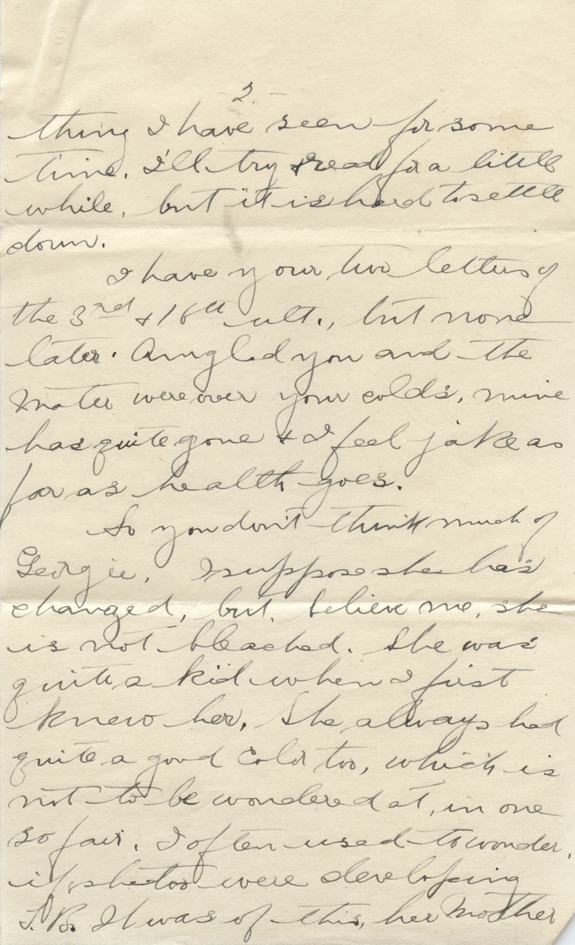 2.
thing I have seen for some
time. I'll try & read for a little
while, but it is hard to settle
down.
I have your two letters of
the 3rd & 16th ult., but none
later. Am glad you and the
Mater were over your colds, mine
has quite gone & I feel jake as
far as health goes.
So you don't think much of
Georgie. I suppose she has
changed, but, believe me, she
is not bleached. She was
quite a kid when I first
knew her. She always had
quite a good color too, which is
not to be wondered at, in one
so fair. I often used to wonder,
if she too were developing
T.B. It was of this, her Mother